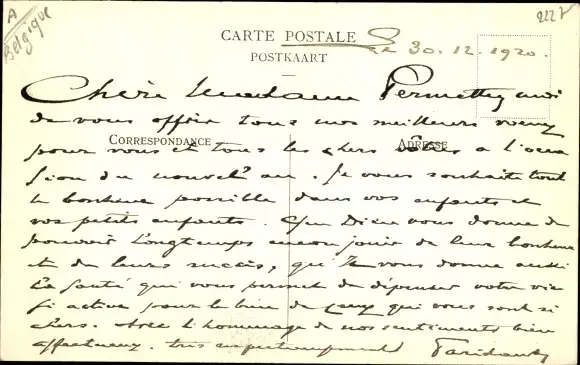 A
Belgique
222
CARTE POSTALE
POSTKAART
Le 30.12.1920.
Chère Madame Permettez moi
de vous offrir tous nos meilleurs voeux
CORRESPONDANCE
ADRESSE
pour vous et tous les chers vôtres a l'occa
sion du nouvel an. Je vous souhaite tout
le bonheur possible dans vos enfants et
vos petits enfants. Que Dieu vous donne de
pouvoir longtemps encore jouir de leur bonheur
et de leurs succès, qu'Il vous donne aussi
la santé qui vous permet de dépenser votre vie
si active pour le bien de ceux qui vous sont si
chers. Avec l'hommage de nos sentiments bien
affectueux. très respectueusement